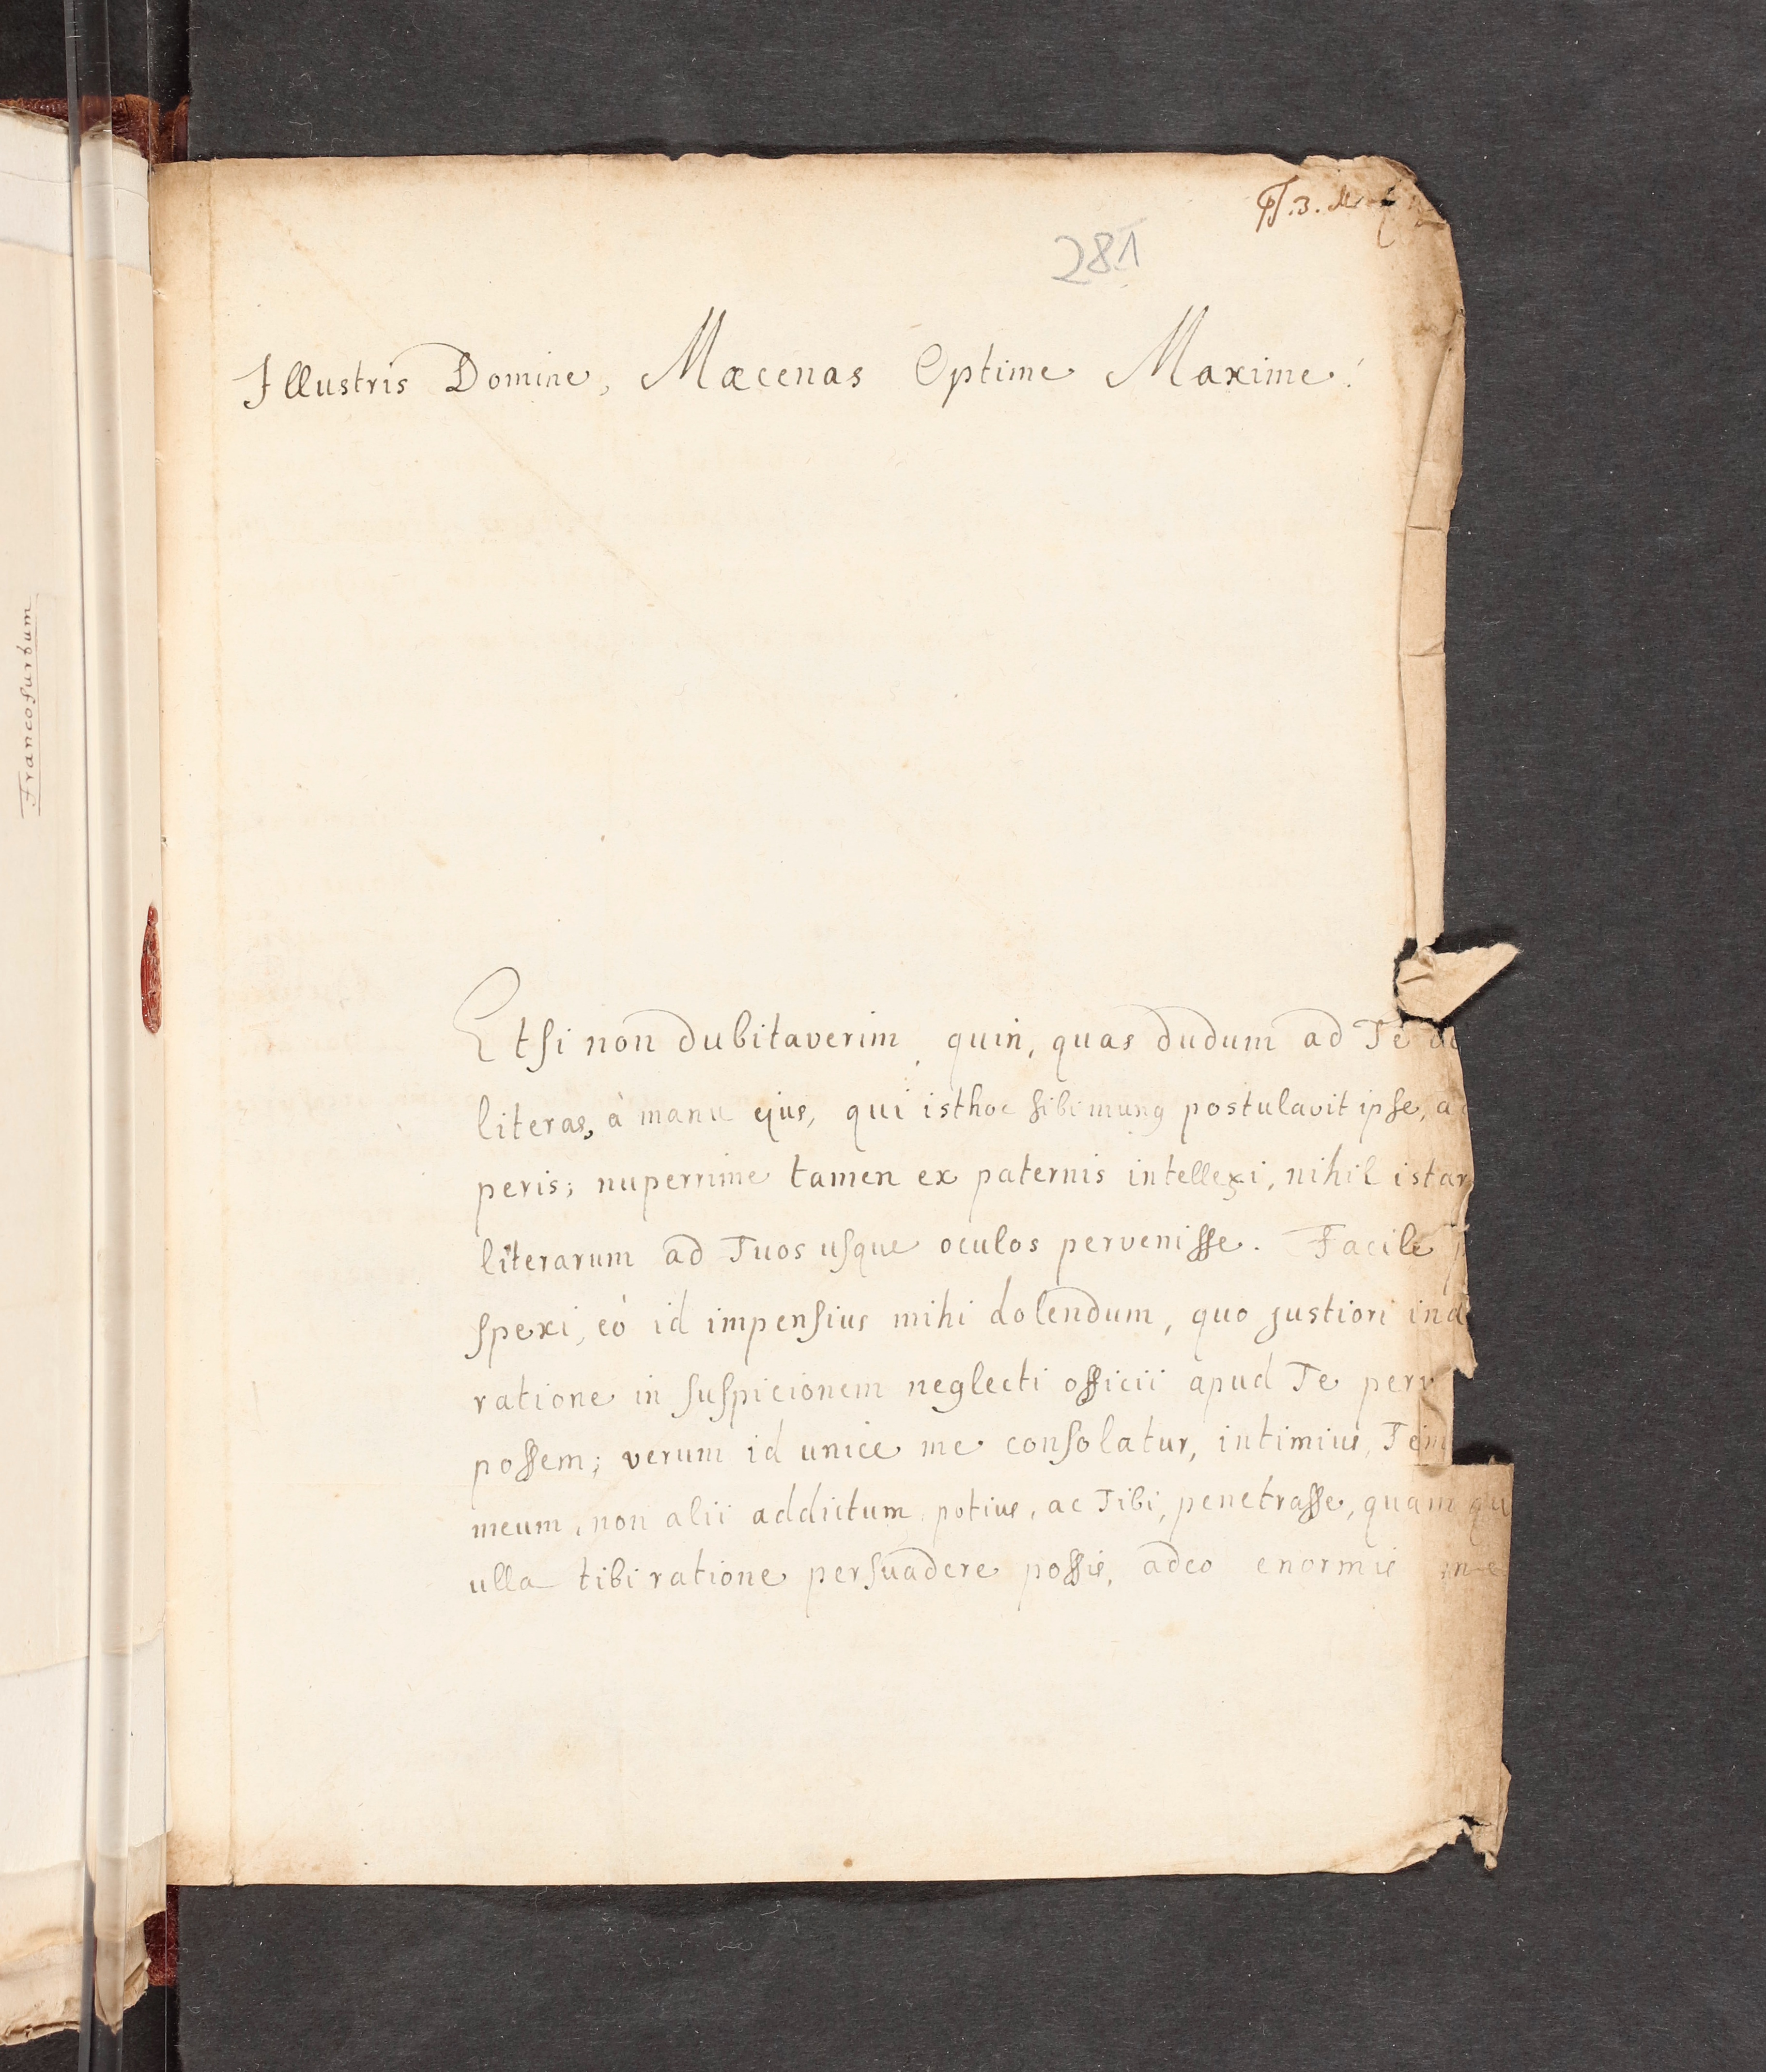 281
Illustris Domine, Mæcenas Optime Maxime!
Etsi non dubitaverim, quin, quas dudum ad Te
literas, à manu ejus, qui isthoc sibi postulavit ipse,
peris; nuperrime tamen ex paternis intellexi, nihil istar
literarum ad Tuos usque oculos pervenisse. Facile
spexi, eò id impensius mihi dolendum, quo justiori ind
ratione in suspicionem neglecti officii apud Te perv
possem; verum id unice me consolatur, intimius, Te
meum, non alii addictum potius, ac Tibi, penetrasse, quam
ulla tibi ratione persuadere possis, adeo enormis
Francofurtum